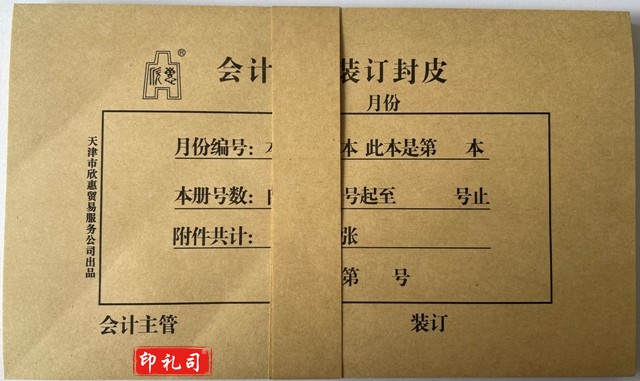 会计 装订封皮
月份
月份编号: 本 此本是第 本
本册号数: 号起至 号止
附件共计: 张
第 号
会计主管 装订
天津市欣惠贸易服务公司出品
®
印礼司